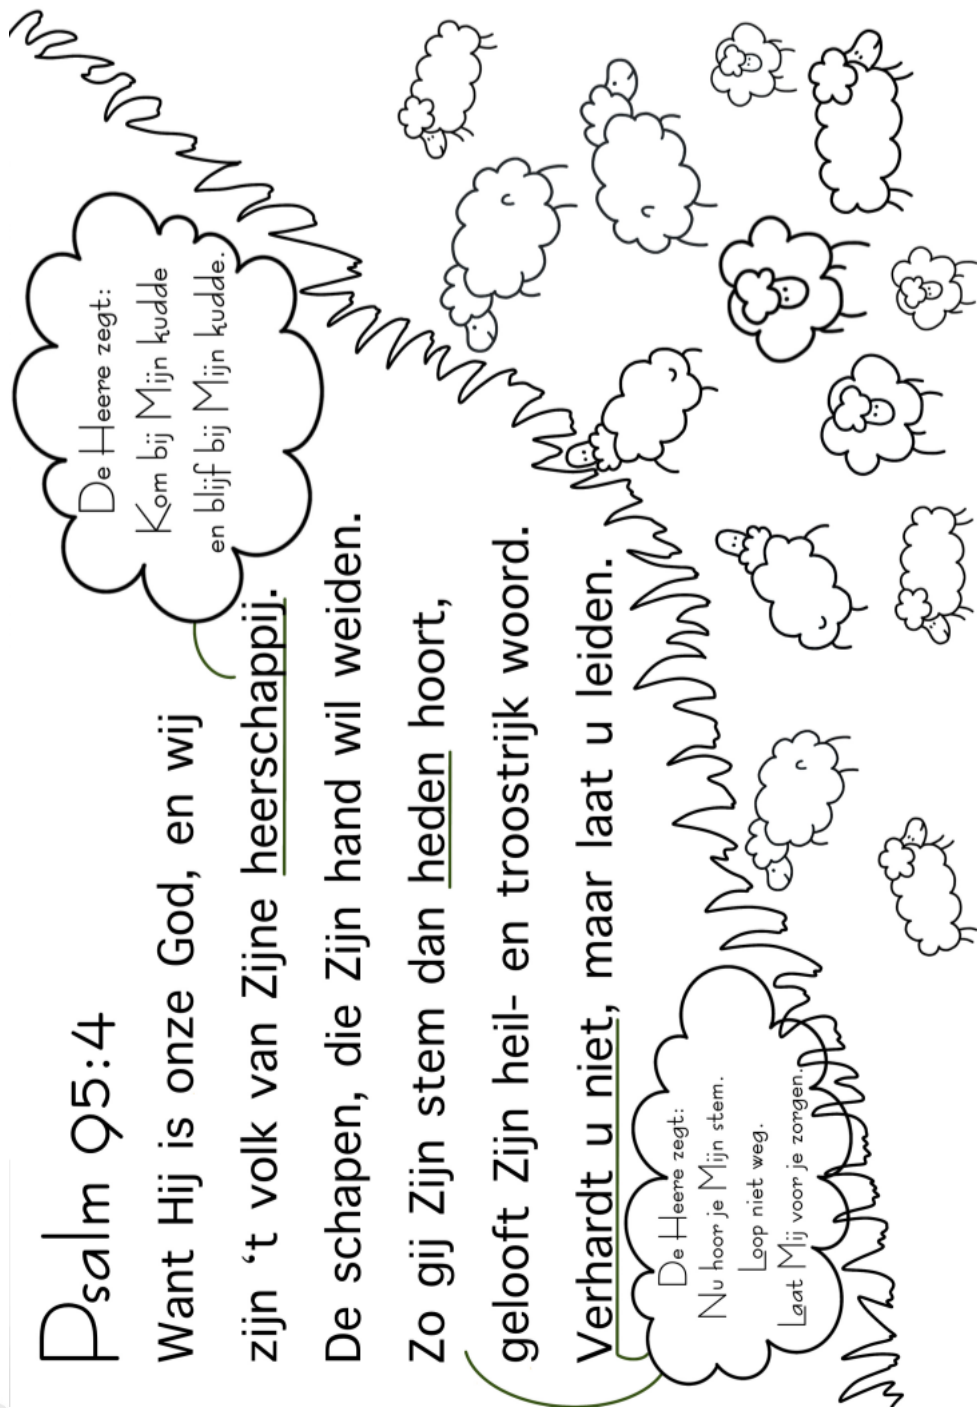 Psalm 95:4
Want Hij is onze God, en wij
zijn ‘t volk van Zijne heerschappij.
De schapen, die Zijn hand wil weiden.
Zo gij Zijn stem dan heden hoort,
gelooft Zijn heil- en troostrijk woord.
Verhardt u niet, maar laat u leiden.
De Heere zegt:
Kom bij Mijn kudde
en blijf bij Mijn kudde.
De Heere zegt:
Nu hoor je Mijn stem.
Loop niet weg.
Laat Mij voor je zorgen.